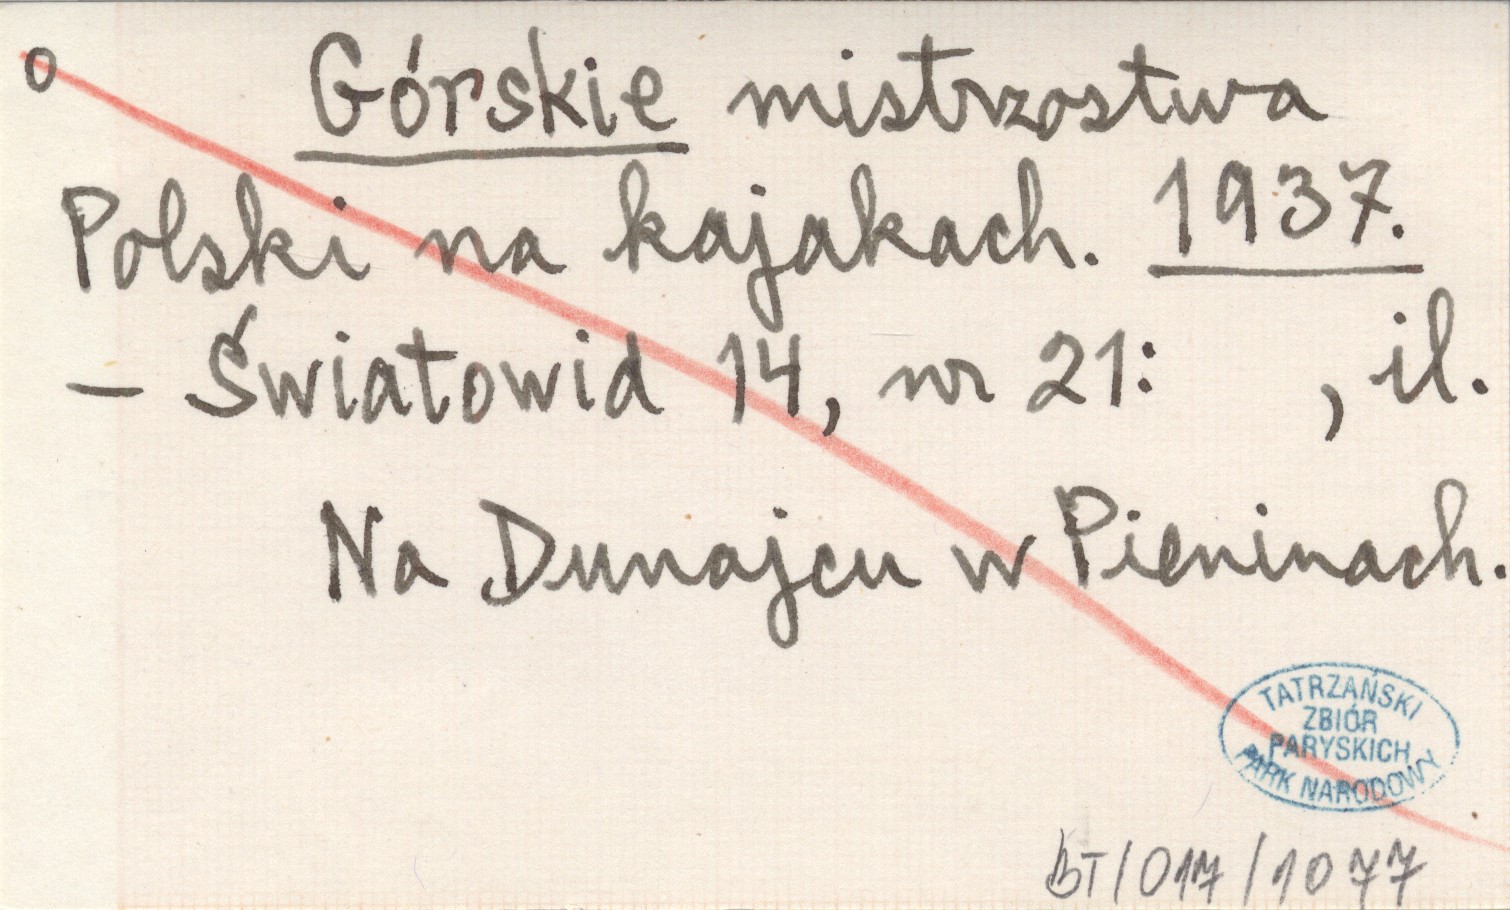 o Górskie mistrzostwa
Polski na kajakach. 1937.
– Światowid 14, nr 21: , il.
Na Dunajcu w Pieninach.
TATRZAŃSKI
ZBIÓR
PARYSKICH
PARK NARODOWY
BT/017/1077